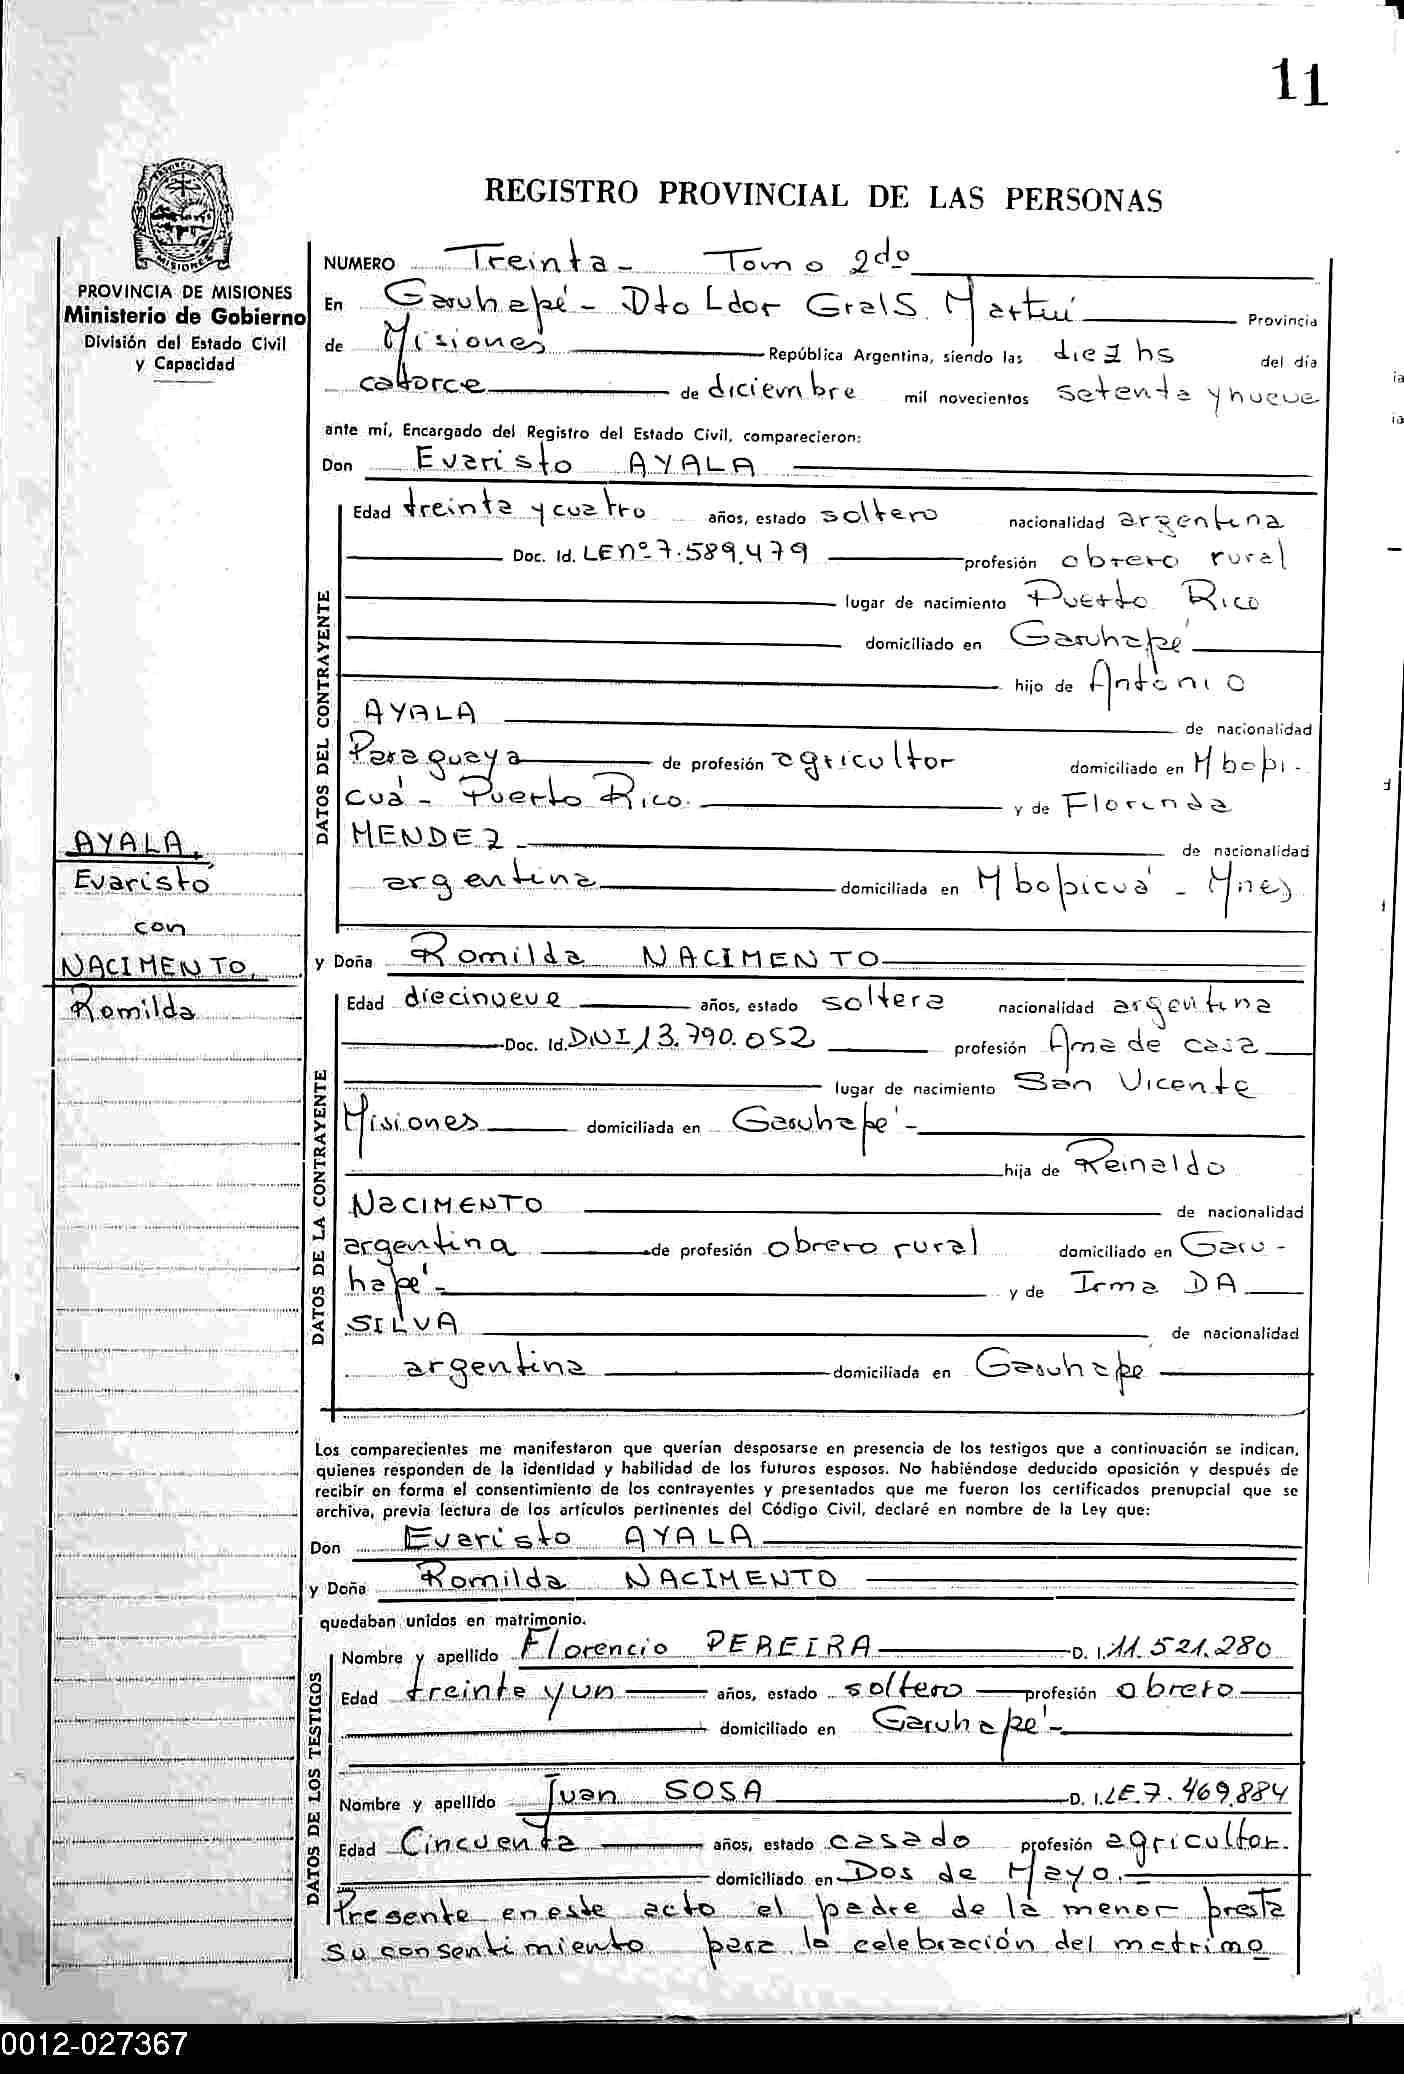 11
PROVINCIA DE
MISIONES
REGISTRO PROVINCIAL DE LAS PERSONAS
PROVINCIA DE MISIONES
Ministerio de Gobierno
División del Estado Civil
y Capacidad
AYALA,
Evaristo
con
NACIMENTO,
Romilda
NUMERO Treinta - Tomo 2do
En Garuhapé - Dto Ldor Gral S. Martín Provincia
de Misiones República Argentina, siendo las diez hs del día
catorce de diciembre mil novecientos setenta y nueve
ante mí, Encargado del Registro del Estado Civil, comparecieron:
Don Evaristo AYALA
DATOS DEL CONTRAYENTE
Edad treinta y cuatro años, estado soltero nacionalidad argentina
Doc. Id. LE nº 7.589.479 profesión obrero rural
lugar de nacimiento Puerto Rico
domiciliado en Garuhapé
hijo de Antonio
AYALA de nacionalidad
Paraguaya de profesión agricultor domiciliado en Mbopi-
cuá - Puerto Rico. y de Florinda
MENDEZ de nacionalidad
argentina domiciliada en Mbopicuá - Mnes
y Doña Romilda NACIMENTO
DATOS DE LA CONTRAYENTE
Edad diecinueve años, estado soltera nacionalidad argentina
Doc. Id. DNI 13.790.052 profesión Ama de casa
lugar de nacimiento San Vicente
Misiones domiciliada en Garuhapé -
hija de Reinaldo
NACIMENTO de nacionalidad
argentina de profesión obrero rural domiciliado en Garu-
hapé - y de Irma DA
SILVA de nacionalidad
argentina domiciliada en Garuhapé
Los comparecientes me manifestaron que querían desposarse en presencia de los testigos que a continuación se indican,
quienes responden de la identidad y habilidad de los futuros esposos. No habiéndose deducido oposición y después de
recibir en forma el consentimiento de los contrayentes y presentados que me fueron los certificados prenupcial que se
archiva, previa lectura de los artículos pertinentes del Código Civil, declaré en nombre de la Ley que:
Don Evaristo AYALA
y Doña Romilda NACIMENTO
quedaban unidos en matrimonio.
DATOS DE LOS TESTIGOS
Nombre y apellido Florencio PEREIRA D. I. 11.521.280
Edad treinta y un años, estado soltero profesión obrero
domiciliado en Garuhapé -
Nombre y apellido Juan SOSA D. I. LE. 7.469.884
Edad Cincuenta años, estado casado profesión agricultor.
domiciliado en Dos de Mayo.
Presente en este acto el padre de la menor presta
su consentimiento para la celebración del matrimo
0012-027367